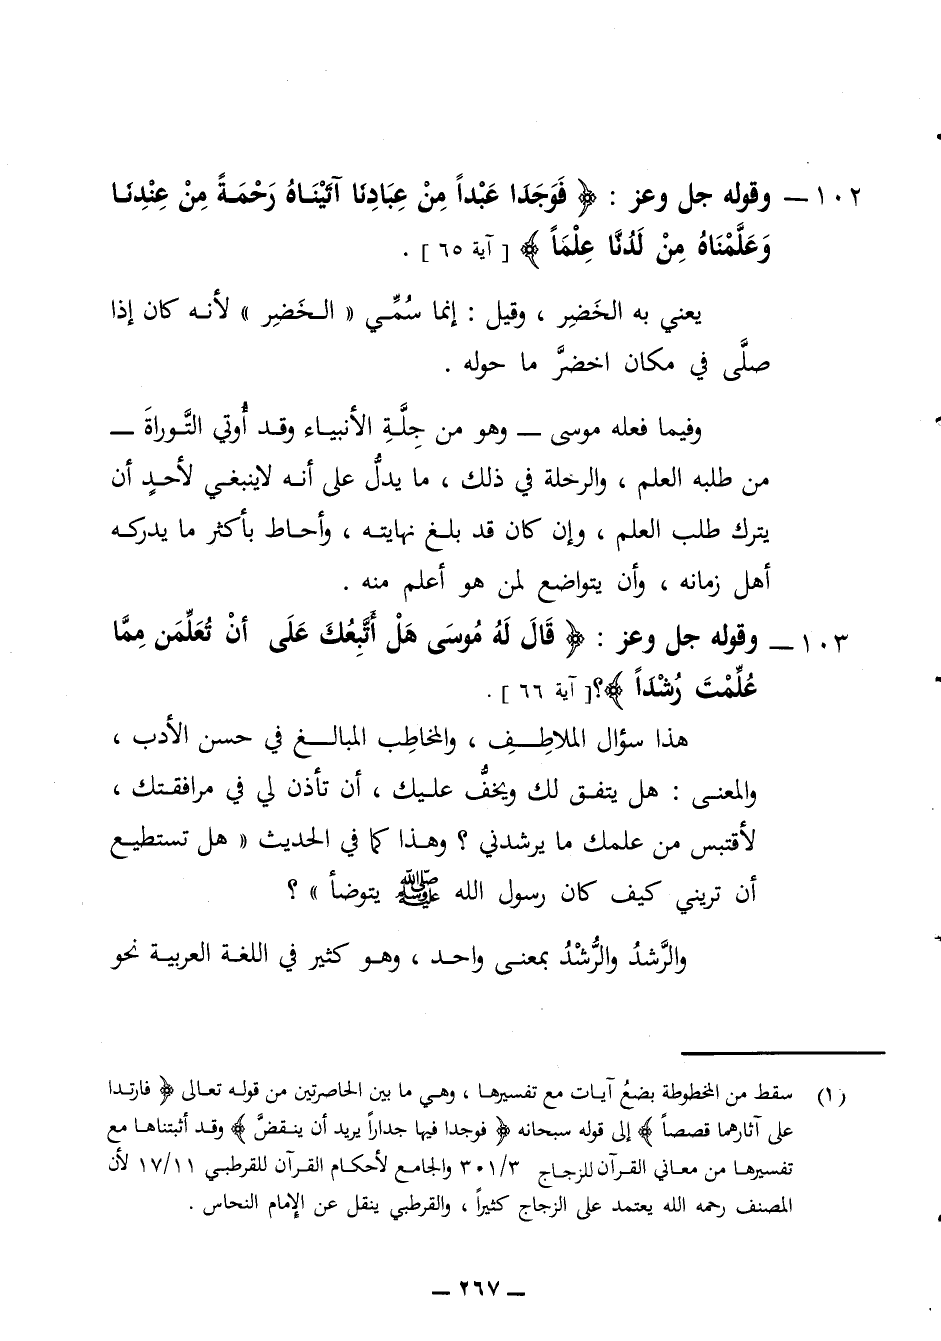 ١٠٢ــ وقوله جل وعز : ﴿ فَوَجَدَا عَبْداً مِنْ عِبَادِنَا آتَيْنَاهُ رَحْمَةً مِنْ عِنْدِنَا
وَعَلَّمْنَاهُ مِنْ لَدُنَّا عِلْمَاً ﴾ [ آية ٦٥ ] .
يعني به الخَضِر ، وقيل : إنما سُمِّي « الخَضِر » لأنه كان إذا
صلَّى في مكان اخضرَّ ما حوله .
وفيما فعله موسى ــ وهو من جِلَّةِ الأنبياء وقد أُوتي التَّوراةَ ــ
من طلبه العلم ، والرحلة في ذلك ، ما يدلُّ على أنه لاينبغي لأحدٍ أن
يترك طلب العلم ، وإن كان قد بلغ نهايته ، وأحاط بأكثر ما يدركه
أهل زمانه ، وأن يتواضع لمن هو أعلم منه .
١٠٣ــ وقوله جل وعز : ﴿ قَالَ لَهُ مُوسَى هَلْ أَتَّبِعُكَ عَلَى أنْ تُعَلِّمَن مِمَّا
عُلِّمْتَ رُشْدَاً ﴾؟[ آية ٦٦ ] .
هذا سؤال الملاطِف ، والمخاطِب المبالغ في حسن الأدب ،
والمعنى : هل يتفق لك ويخفُّ عليك ، أن تأذن لي في مرافقتك ،
لأقتبس من علمك ما يرشدني ؟ وهذا كما في الحديث « هل تستطيع
أن تريني كيف كان رسول الله ﷺ يتوضأ » ؟
والرَّشدُ والرُّشْدُ بمعنى واحد ، وهو كثير في اللغة العربية نحو
(١) سقط من المخطوطة بضعُ آيات مع تفسيرها ، وهي ما بين الحاصرتين من قوله تعالى ﴿ فارتدا
على آثارهما قصصاً ﴾ إلى قوله سبحانه ﴿ فوجدا فيها جداراً يريد أن ينقضَّ ﴾ وقد أثبتناها مع
تفسيرها من معاني القرآن للزجاج ٣٠١/٣ والجامع لأحكام القرآن للقرطبي ١٧/١١ لأن
المصنف رحمه الله يعتمد على الزجاج كثيراً ، والقرطبي ينقل عن الإمام النحاس .
ــ ٢٦٧ ــ